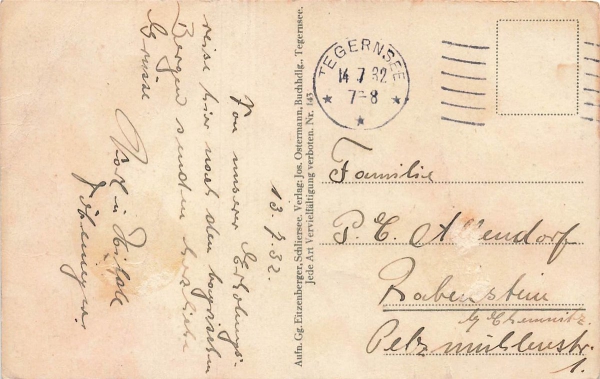 13.7.32.
Von unserer Erholungs-
reise hier nach den bayrischen
Bergen senden herzliche
Grüsse
Aufn. Gg. Eitzenberger, Schliersee. Verlag: Jos. Ostermann, Buchhdlg., Tegernsee.
Jede Art Vervielfältigung verboten. Nr. 143
TEGERNSEE
14.7.32
7-8
Familie
P. E. Allendorf
Rabenstein
b/ Chemnitz.
Pelzmühlenstr.
1.